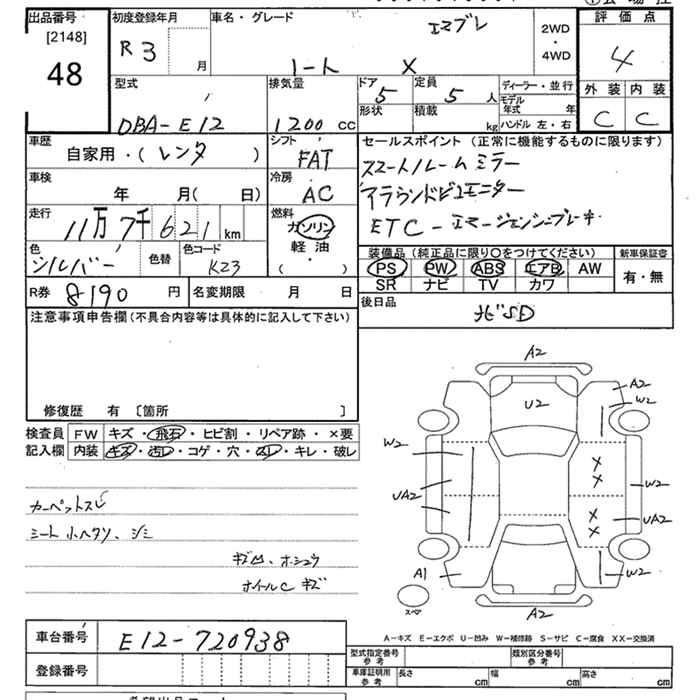 出品番号
[2148]
48
初度登録年月
R 3 月
車名・グレード
エマブレ
ノート X
2WD
・
4WD
評価点
4
外装 内装
C C
型式
DBA-E12
排気量
1200 CC
ドア
5
形状
定員
5 人
積載
kg
ディーラー・並行
モデル年式 年
ハンドル 左・右
車歴
自家用・( レンタ )
シフト
FAT
車検
年 月( 日)
冷房
AC
走行
11万7千621 km
燃料
ガソリン
軽油
( ・ )
色
シルバー
色替
色コード
K23
R券 8190 円
名変期限 月 日
セールスポイント (正常に機能するものに限ります)
スマートルームミラー
アラウンドビューモニター
ETC - エマージェンシーブレーキ
装備品 (純正品に限り〇をつけてください)
PS PW ABS エアB AW
SR ナビ TV カワ
新車保証書
有・無
後日品
ナビSD
注意事項申告欄 (不具合内容等は具体的に記入して下さい)
修復歴 有 〔箇所 〕
検査員
記入欄
FW キズ・飛石・ヒビ割・リペア跡・×要
内装 キズ・汚レ・コゲ・穴・スレ・キレ・破レ
カーペットスレ
シート小ヘタリ、シミ
キズ凹、ホシュウ
ホイールC キズ
A2
A2
W2
U2
W2
UA2
W2
UA2
A1
W2
A2
スペア
A-キズ E-エクボ U-凹み W-補修跡 S-サビ C-腐食 XX-交換済
車台番号 E12-720938
登録番号
型式指定番号
参考
類別区分番号
参考
車庫証明用
参考
長さ cm 幅 cm 高さ cm